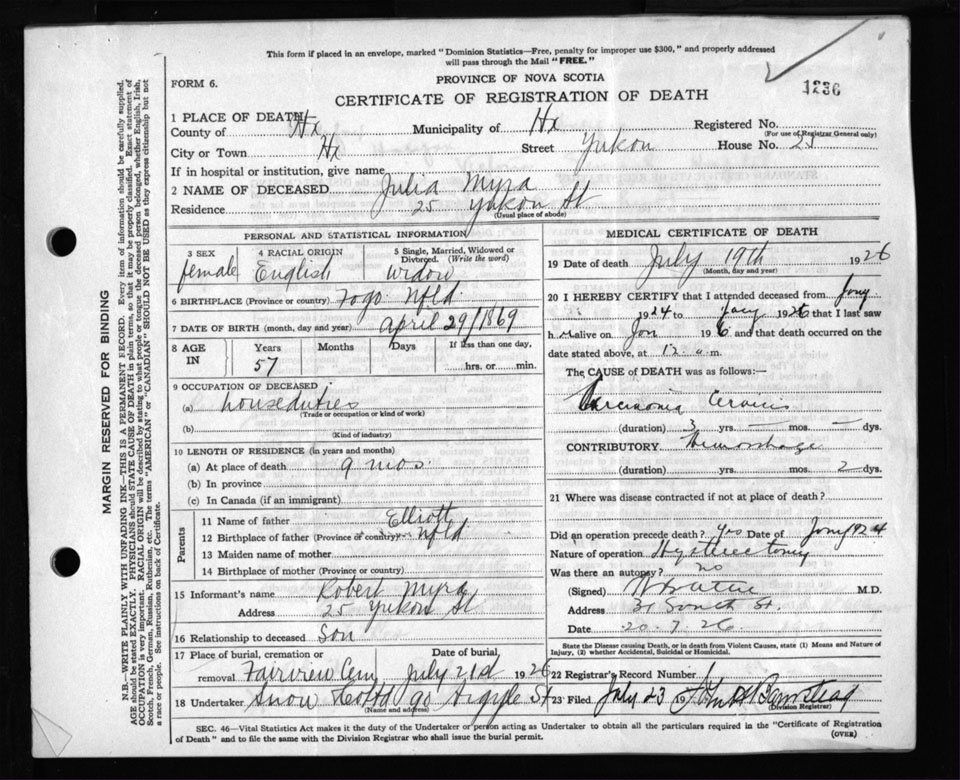 This form if placed in an envelope, marked "Dominion Statistics—Free, penalty for improper use $300," and properly addressed
will pass through the Mail "FREE."
1236
PROVINCE OF NOVA SCOTIA
FORM 6.
CERTIFICATE OF REGISTRATION OF DEATH
1 PLACE OF DEATH
County of Hx Municipality of Hx Registered No.
(For use of Registrar General only)
City or Town Hx Street Yukon House No. 25
If in hospital or institution, give name
2 NAME OF DECEASED Julia Myra
Residence 25 Yukon St
(Usual place of abode)
PERSONAL AND STATISTICAL INFORMATION
3 SEX 4 RACIAL ORIGIN 5 Single, Married, Widowed or
Divorced. (Write the word)
female English widow
6 BIRTHPLACE (Province or country) Fogo Nfld.
7 DATE OF BIRTH (month, day and year) April 29/1869
8 AGE IN Years Months Days If less than one day,
57 hrs. or min.
9 OCCUPATION OF DECEASED
(a) house duties
(Trade or occupation or kind of work)
(b)
(Kind of industry)
10 LENGTH OF RESIDENCE (in years and months)
(a) At place of death 9 mos.
(b) In province
(c) In Canada (if an immigrant)
Parents
11 Name of father Elliott
12 Birthplace of father (Province or country) Nfld
13 Maiden name of mother
14 Birthplace of mother (Province or country)
15 Informant's name Robert Myra
Address 25 Yukon St
16 Relationship to deceased Son
17 Place of burial, cremation or Date of burial,
removal Fairview Cem July 21st 1926
18 Undertaker Snow Co Ltd 90 Argyle St
(Name and address)
MEDICAL CERTIFICATE OF DEATH
19 Date of death July 19th 1926
(Month, day and year)
20 I HEREBY CERTIFY that I attended deceased from
1924 to 1926 that I last saw
h alive on 1926 and that death occurred on
date stated above, at 12 a.m.
The CAUSE of DEATH was as follows:—
Carcinoma Cervix
(duration) 3 yrs. — mos. — dys.
CONTRIBUTORY Hemorrhage
(duration) yrs. mos. 2 dys.
21 Where was disease contracted if not at place of death?
Did an operation precede death? Yes Date of 1924
Nature of operation Hysterectomy
Was there an autopsy? no
(Signed) M.D.
Address 31 South St.
Date 20.7.26
State the Disease causing Death, or in death from Violent Causes, state (1) Means and Nature of
Injury, (2) whether Accidental, Suicidal or Homicidal.
22 Registrar's Record Number
23 Filed July 23
(Division Registrar)
SEC. 46—Vital Statistics Act makes it the duty of the Undertaker or person acting as Undertaker to obtain all the particulars required in the "Certificate of Registration
of Death" and to file the same with the Division Registrar who shall issue the burial permit.
(OVER)
MARGIN RESERVED FOR BINDING
N.B.—WRITE PLAINLY WITH UNFADING INK—THIS IS A PERMANENT RECORD. Every item of information should be carefully supplied.
AGE should be stated EXACTLY. PHYSICIANS should STATE CAUSE OF DEATH in plain terms, so that it may be properly classified. Exact statement of
OCCUPATION is very important. RACIAL ORIGIN will be described by stating to what people or tongue the deceased person belonged, whether English, Irish,
Scotch, French, German, Russian, Ruthenian, etc. The terms "AMERICAN" or "CANADIAN" SHOULD NOT BE USED as they express citizenship but not
a race or people. See instructions on back of Certificate.